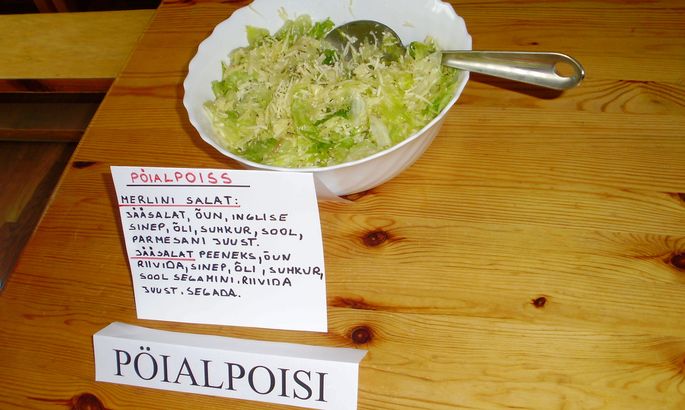 PÖIALPOISS
MERLINI SALAT:
JÄÄSALAT, ÕUN, INGLISE
SINEP, ÕLI, SUHKUR, SOOL,
PARMESANI JUUST.
JÄÄSALAT PEENEKS, ÕUN
RIIVIDA, SINEP, ÕLI, SUHKUR,
SOOL SEGAMINI. RIIVIDA
JUUST. SEGADA.
PÖIALPOISI